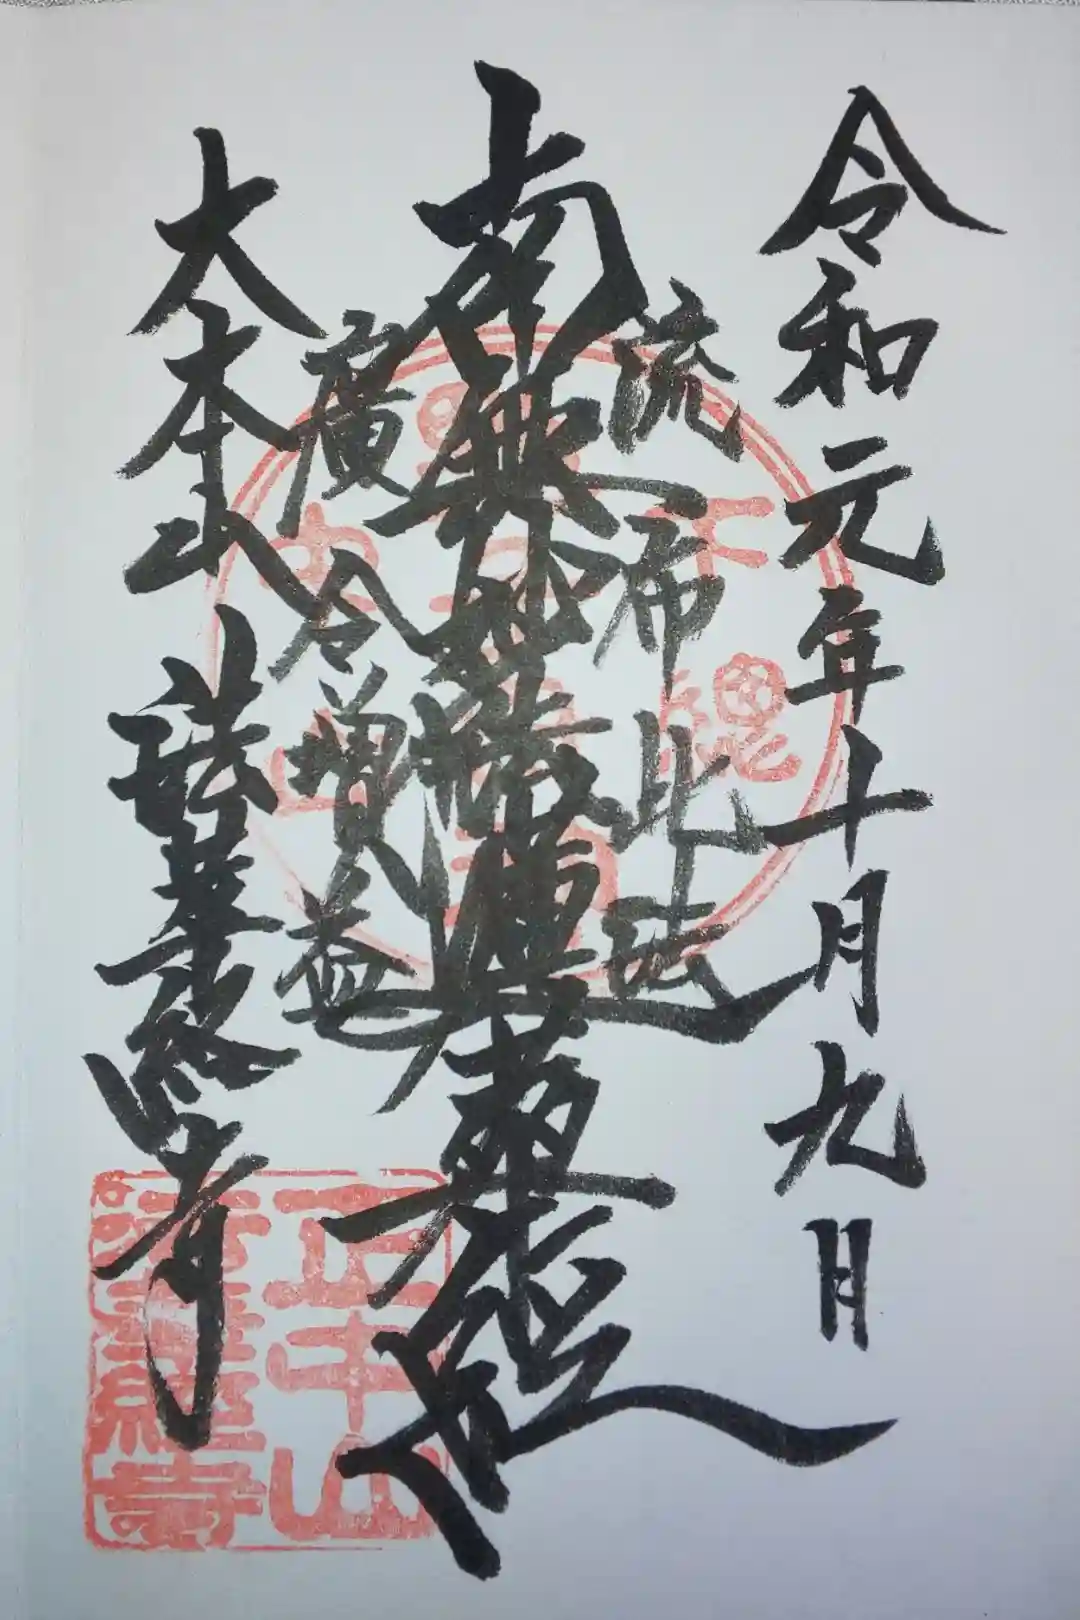 令和元年十月九日
流布此法
南無妙法蓮華経
廣令増益
大本山
法華経寺
正中山
法華経寺